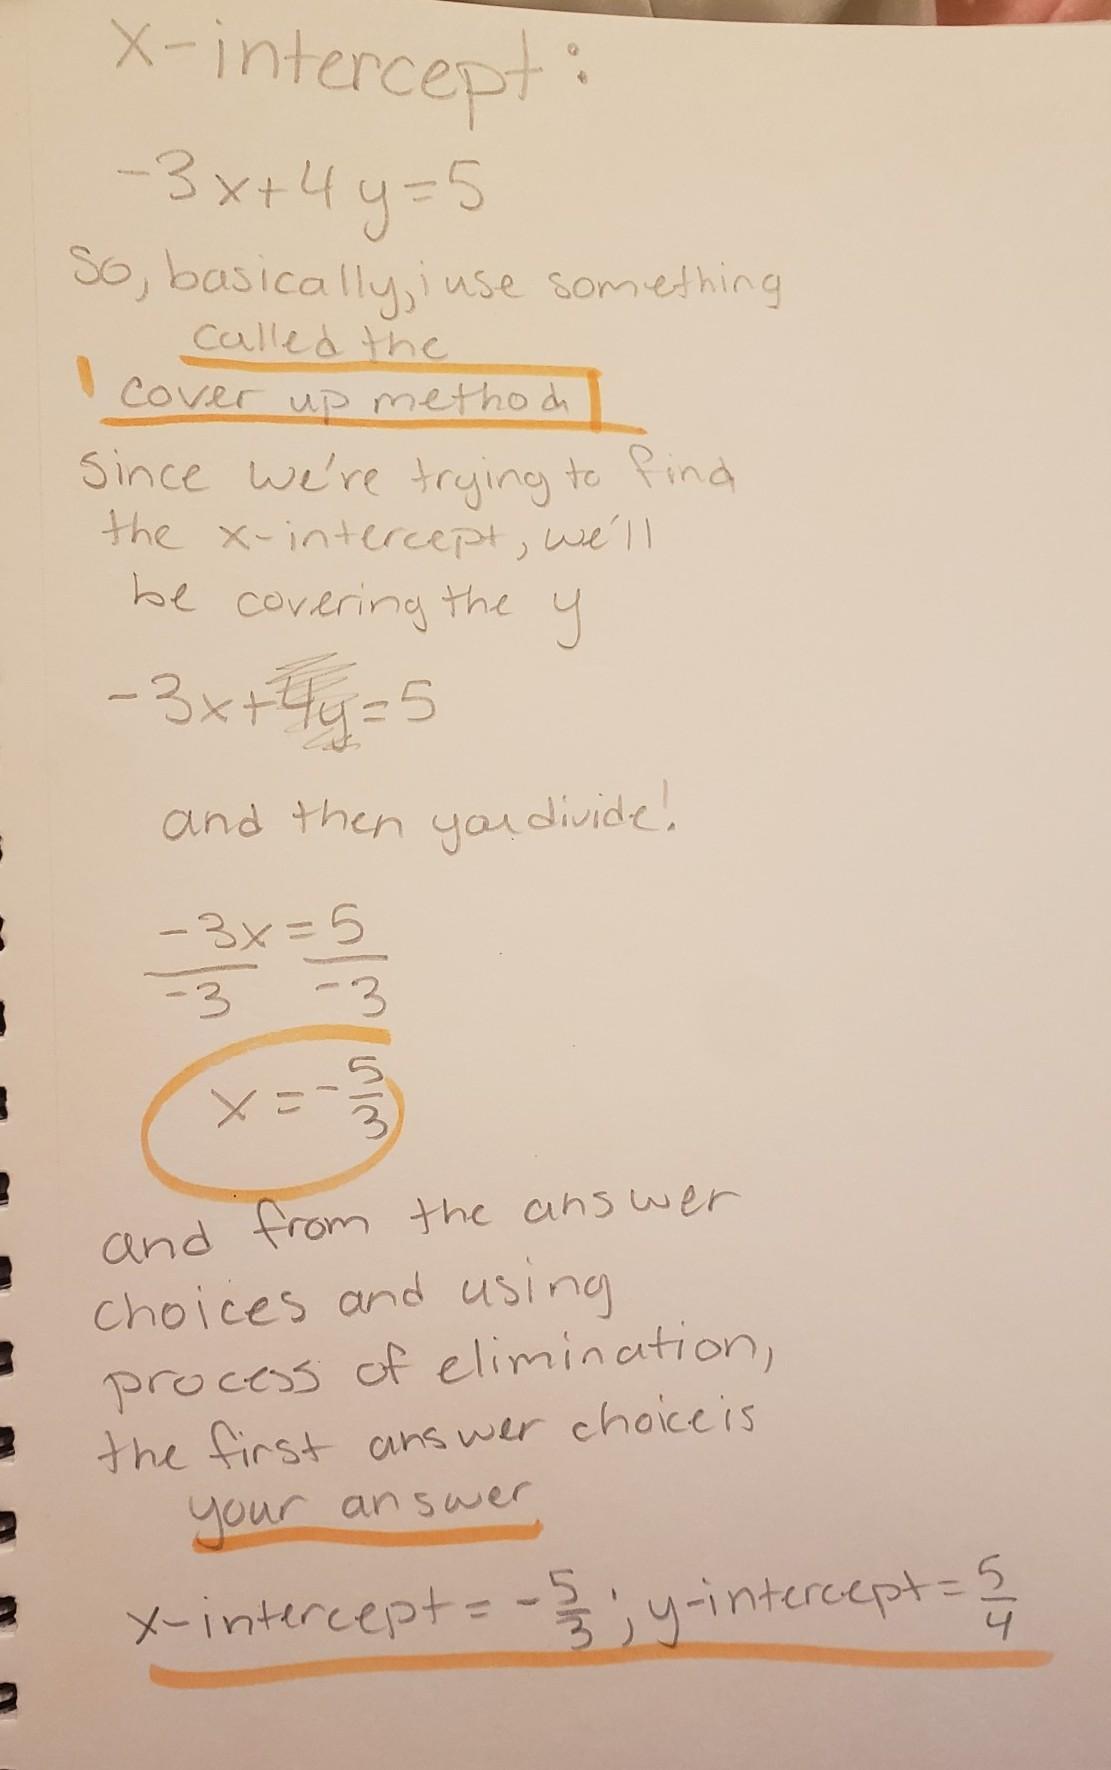 x-intercept:
-3x+4y=5
So, basically, i use something
called the
cover up method
Since we're trying to find
the x-intercept, we'll
be covering the y
-3x+4y=5
and then you divide!
-3x=5
-3 -3
x=-5/3
and from the answer
choices and using
process of elimination,
the first answer choice is
your answer
x-intercept=-5/3; y-intercept=5/4